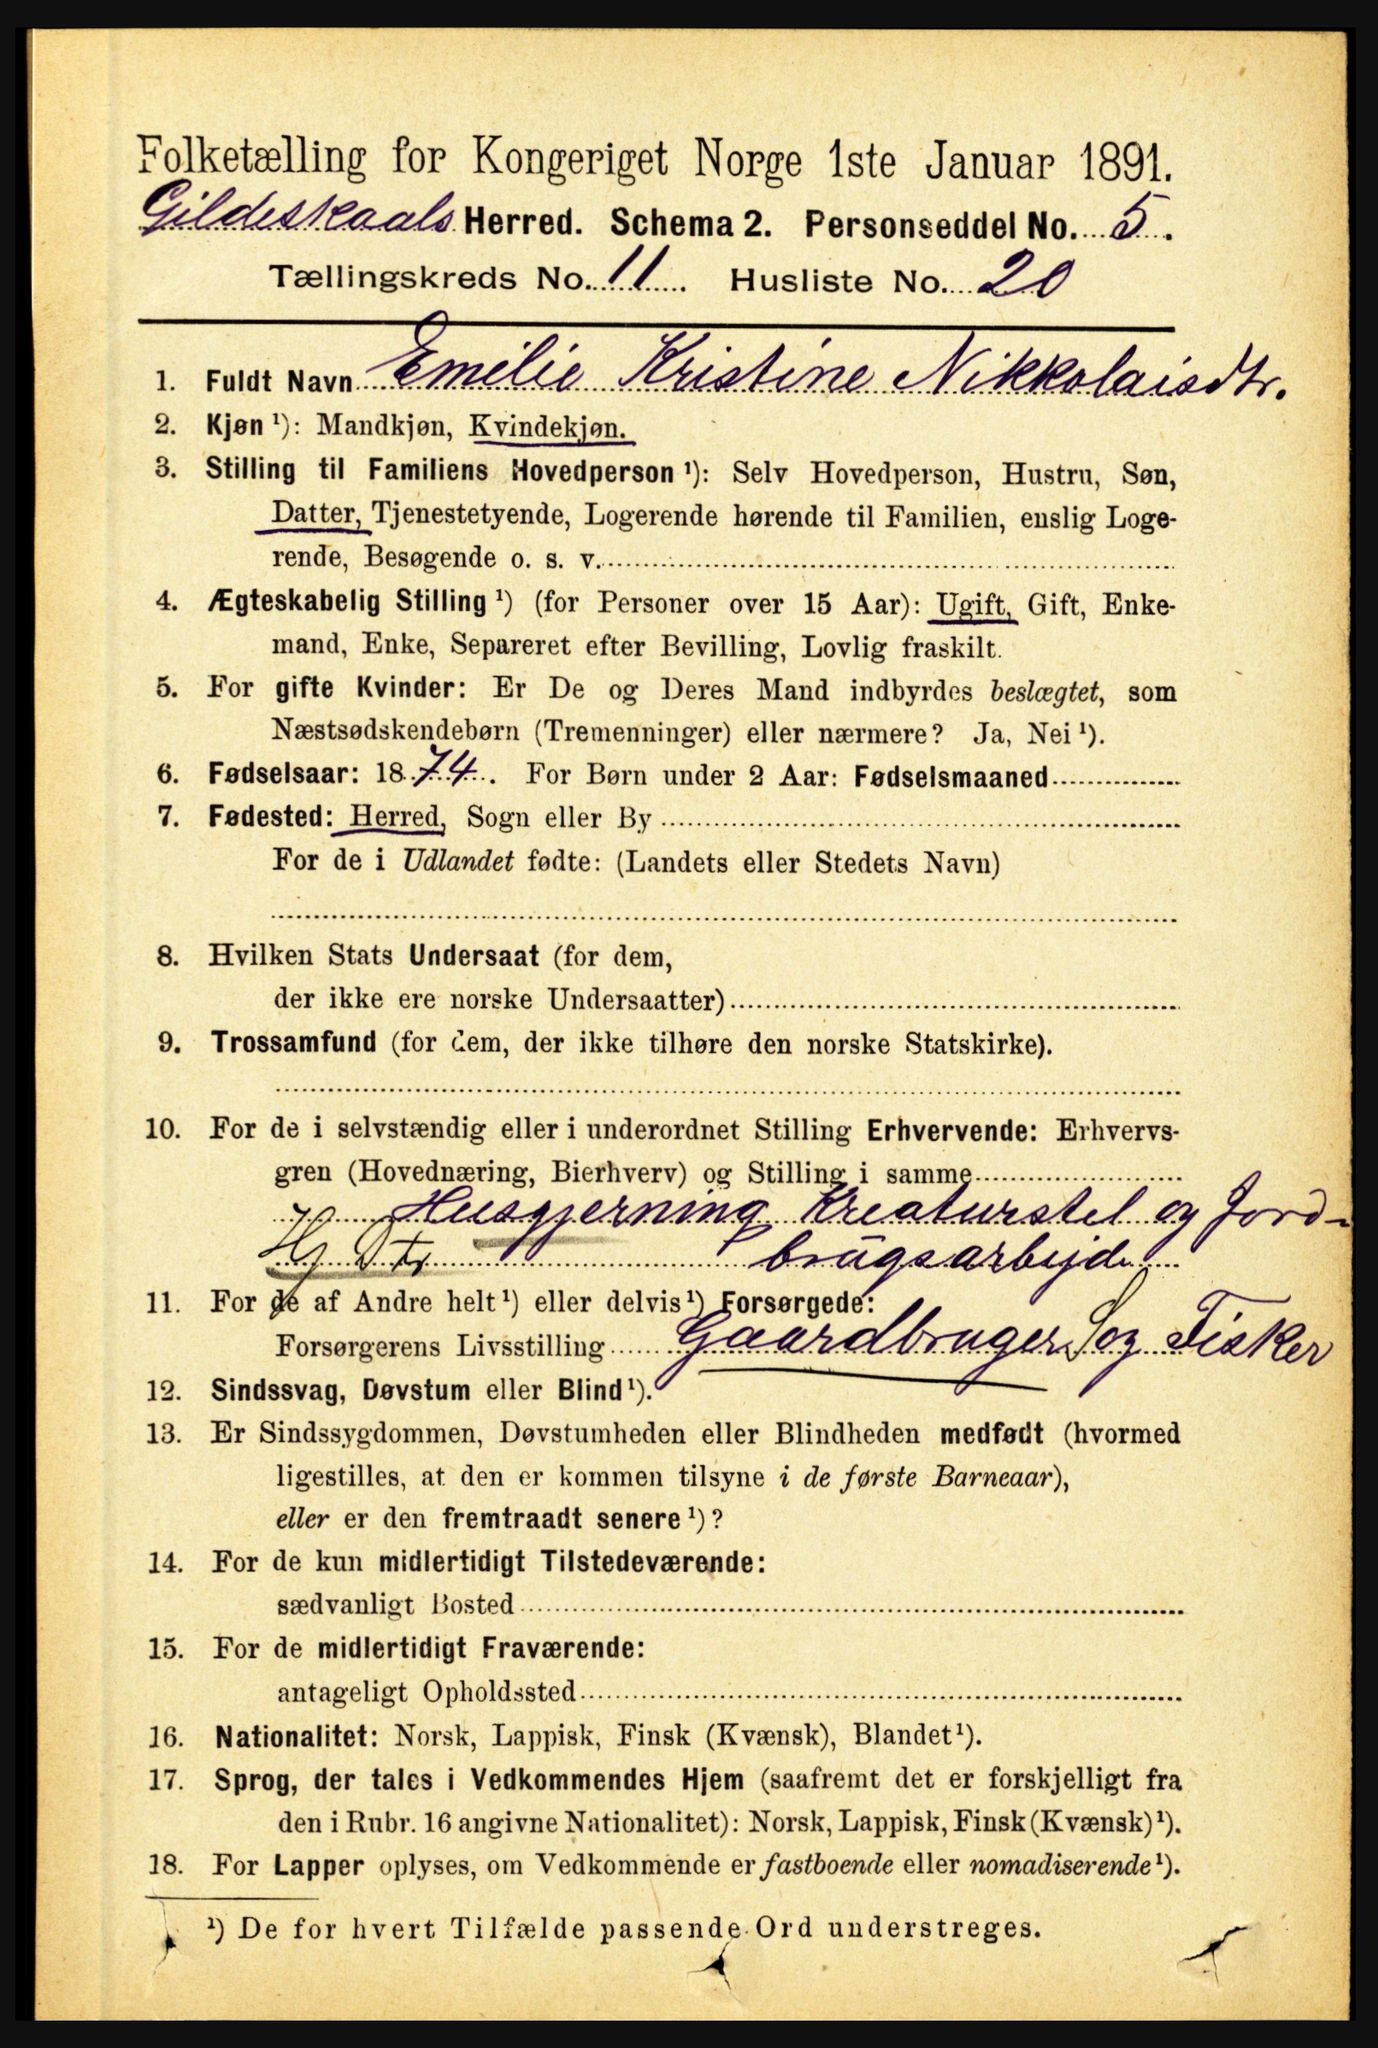 Folketælling for Kongeriget Norge 1ste Januar 1891.
Gildeskaals Herred. Schema 2. Personseddel No. 5.
Tællingskreds No. 11. Husliste No. 20
1. Fuldt Navn Emilie Kristine Nikkolaisdtr.
2. Kjøn ¹): Mandkjøn, Kvindekjøn.
3. Stilling til Familiens Hovedperson ¹): Selv Hovedperson, Hustru, Søn,
Datter, Tjenestetyende, Logerende hørende til Familien, enslig Loge-
rende, Besøgende o. s. v.
4. Ægteskabelig Stilling ¹) (for Personer over 15 Aar): Ugift, Gift, Enke-
mand, Enke, Separeret efter Bevilling, Lovlig fraskilt.
5. For gifte Kvinder: Er De og Deres Mand indbyrdes beslægtet, som
Næstsødskendebørn (Tremenninger) eller nærmere? Ja, Nei ¹).
6. Fødselsaar: 1874. For Børn under 2 Aar: Fødselsmaaned
7. Fødested: Herred, Sogn eller By
For de i Udlandet fødte: (Landets eller Stedets Navn)
8. Hvilken Stats Undersaat (for dem,
der ikke ere norske Undersaatter)
9. Trossamfund (for dem, der ikke tilhøre den norske Statskirke).
10. For de i selvstændig eller i underordnet Stilling Erhvervende: Erhvervs-
gren (Hovednæring, Bierhverv) og Stilling i samme
Husgjerning Kreaturstel og Jord-
Hj. Dtr brugsarbejde
11. For de af Andre helt ¹) eller delvis ¹) Forsørgede:
Forsørgerens Livsstilling Gaardbruger S og Fisker
12. Sindssvag, Døvstum eller Blind ¹).
13. Er Sindssygdommen, Døvstumheden eller Blindheden medfødt (hvormed
ligestilles, at den er kommen tilsyne i de første Barneaar),
eller er den fremtraadt senere ¹)?
14. For de kun midlertidigt Tilstedeværende:
sædvanligt Bosted
15. For de midlertidigt Fraværende:
antageligt Opholdssted
16. Nationalitet: Norsk, Lappisk, Finsk (Kvænsk), Blandet ¹).
17. Sprog, der tales i Vedkommendes Hjem (saafremt det er forskjelligt fra
den i Rubr. 16 angivne Nationalitet): Norsk, Lappisk, Finsk (Kvænsk) ¹).
18. For Lapper oplyses, om Vedkommende er fastboende eller nomadiserende ¹).
¹) De for hvert Tilfælde passende Ord understreges.